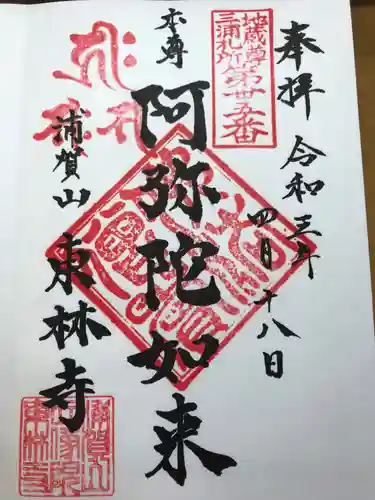 奉拝
令和三年
四月十八日
地蔵尊
三浦札所
第卅五番
本尊
阿弥陀如来
浦賀山
東林寺